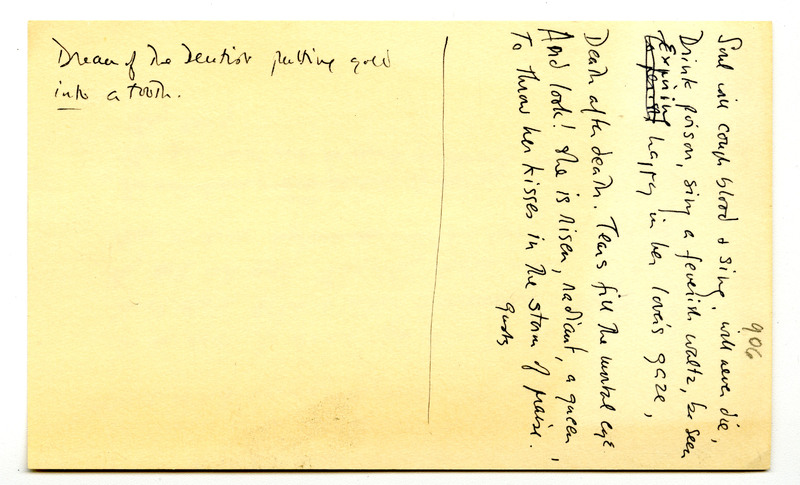 Dream of the Dentist putting gold
into a tooth.
Soul will cough blood & sing, will never die,
Drink poison, sing a feverish waltz, be seen
Expiring
happy in her lover's gaze,
Death after death. Tears fill the mortal eye
And look! She is risen, radiant, a queen,
To throw her kisses in the storm of praise.
906